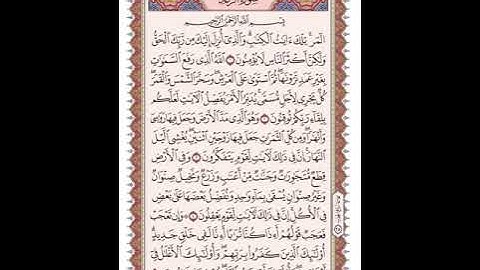 سورة الرعد
بسم الله الرحمن الرحيم
المر تلك ءايت الكتب والذي أنزل إليك من ربك الحق
ولكن أكثر الناس لا يؤمنون ١ الله الذي رفع السموت
بغير عمد ترونها ثم استوى على العرش وسخر الشمس والقمر
كل يجري لأجل مسمى يدبر الأمر يفصل الآيت لعلكم
بلقاء ربكم توقنون ٢ وهو الذي مد الأرض وجعل فيها روسي
وأنهرا ومن كل الثمرت جعل فيها زوجين اثنين يغشي اليل
النهار إن في ذلك لآيت لقوم يتفكرون ٣ وفي الأرض
قطع متجورت وجنت من أعنب وزرع ونخيل صنوان
وغير صنوان يسقى بماء وحد ونفضل بعضها على بعض
في الأكل إن في ذلك لآيت لقوم يعقلون ٤ وإن تعجب
فعجب قولهم أءذا كنا تربا أءنا لفي خلق جديد
أولئك الذين كفروا بربهم وأولئك الأغلل في